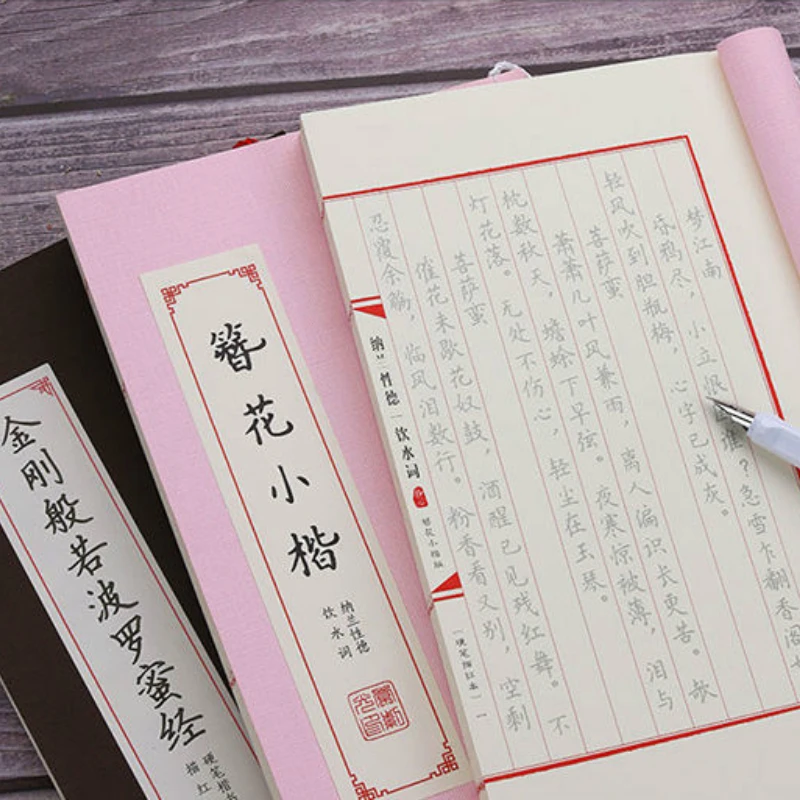 金刚般若波罗蜜经
硬笔楷书
描红
簪花小楷
纳兰性德
饮水词
梦江南
昏鸦尽，小立恨谁？急雪乍翻香阁
轻风吹到胆瓶梅，心字已成灰。
菩萨蛮
萧萧几叶风兼雨，离人偏识长更苦。欹
枕数秋天，蟾蜍下早弦。夜寒惊被薄，泪与
灯花落。无处不伤心，轻尘在玉琴。
菩萨蛮
催花未歇花奴鼓，酒醒已见残红舞。不
忍覆余觞，临风泪数行。粉香看又别，空剩
纳兰性德|饮水词
簪花小楷版
（硬笔描红本）